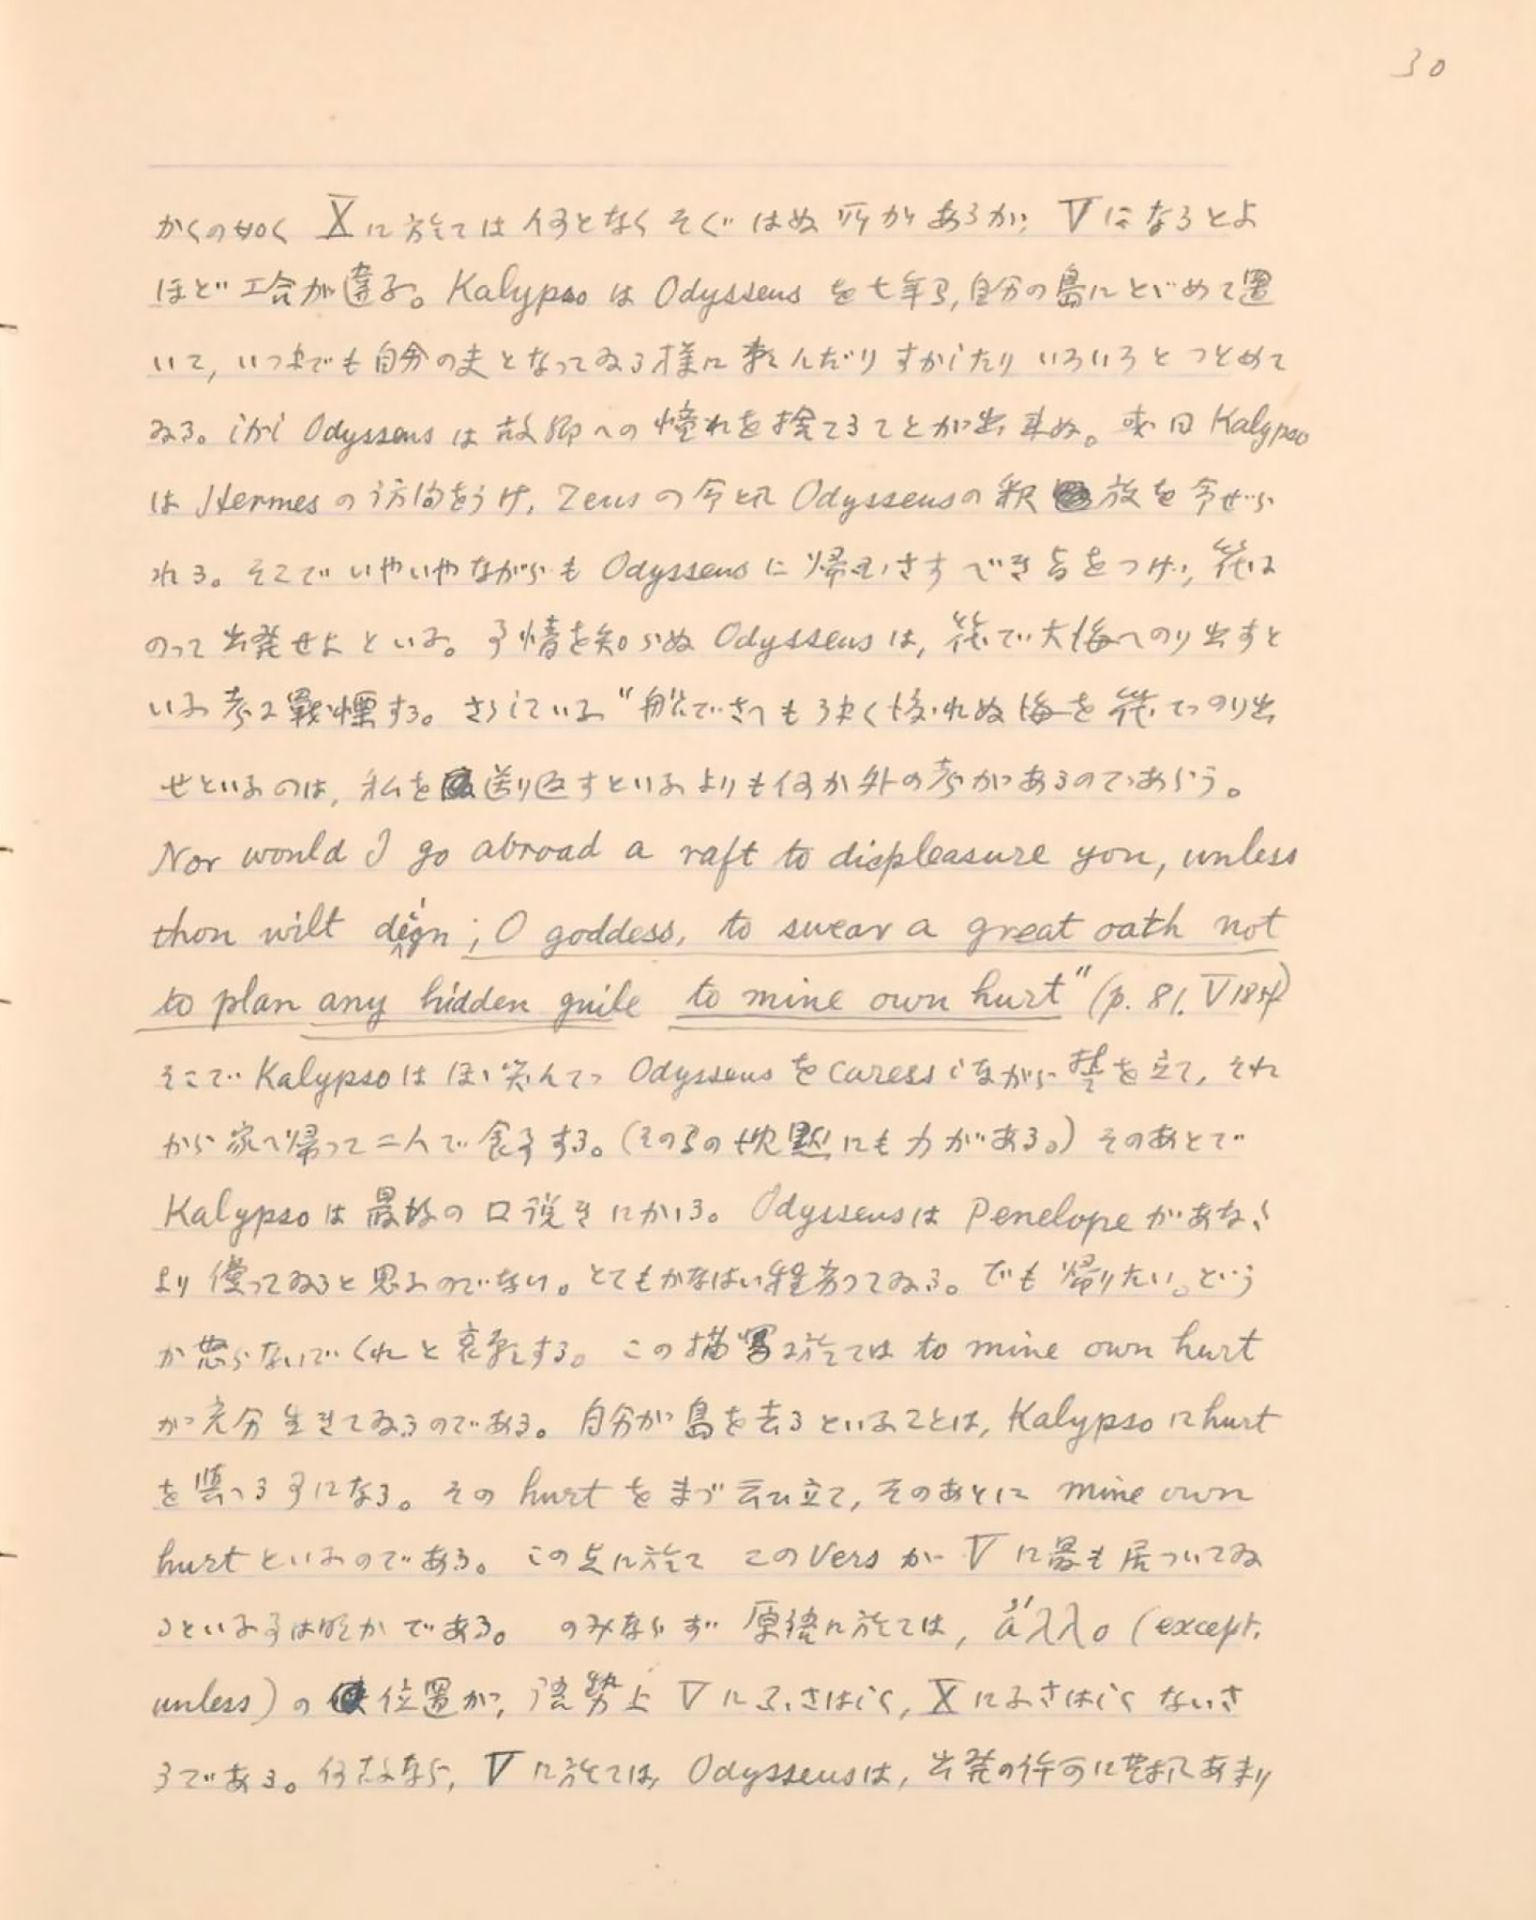 30
かくの如く X に於ては何となくそぐはぬ所があるが、V になるとよ
ほど工合が違ふ。Kalypso は Odysseus を七年間,自分の島にとゞめて置
いて, いつまでも自分の夫となってゐる様に頼んだりすかしたりいろいろとつとめて
ゐる。しかし Odysseus は故郷への憧れを捨てることが出来ぬ。或日 Kalypso
は Hermes の訪問をうけ, Zeus の命とて Odysseusの釈放を命ぜら
れる。そこでいやいやながらも Odysseus に帰国さすべき旨をつげ, 筏に
のって出発せよといふ。事情を知らぬ Odysseus は, 筏で大海へのり出すと
いふ考に戰慄する。さうしていふ "船でさへも 渡れぬ海を筏でのり出
せといふのは, 私を送り返すといふよりも何か外の考があるのであらう。
Nor would I go abroad a raft to displeasure you, unless
thou wilt deign ; O goddess, to swear a great oath not
to plan any hidden guile to mine own hurt" (p. 81. V 184)
そこで Kalypsoは ほゝ笑んで Odysseus をcaress しながら誓を立て, それ
から家へ帰って二人で食事する。(その間の沈黙にも力がある。) そのあとで
Kalypso は最後の口説きにかゝる。Odysseusは Penelope があなた
より優ってゐると思ふのでない。とてもかなはい程劣ってゐる。でも帰りたい。どう
か怒らないでくれと哀願する。この描写に於ては to mine own hurt
が充分生きてゐるのである。自分が島を去るといふことは, Kalypso に hurt
を与へる事になる。その hurt をまづ云ひ立て, そのあとに mine own
hurt といふのである。この点に於て このVers が V に最も居ついてゐ
るといふ事は明かである。のみならず 原語に於ては, ἄλλο (except,
unless) の位置が, 語勢上 V にふさはしく, X にふさはしくないさ
うである。何故なら, V に於ては, Odysseusは, 出発の許可に あまり